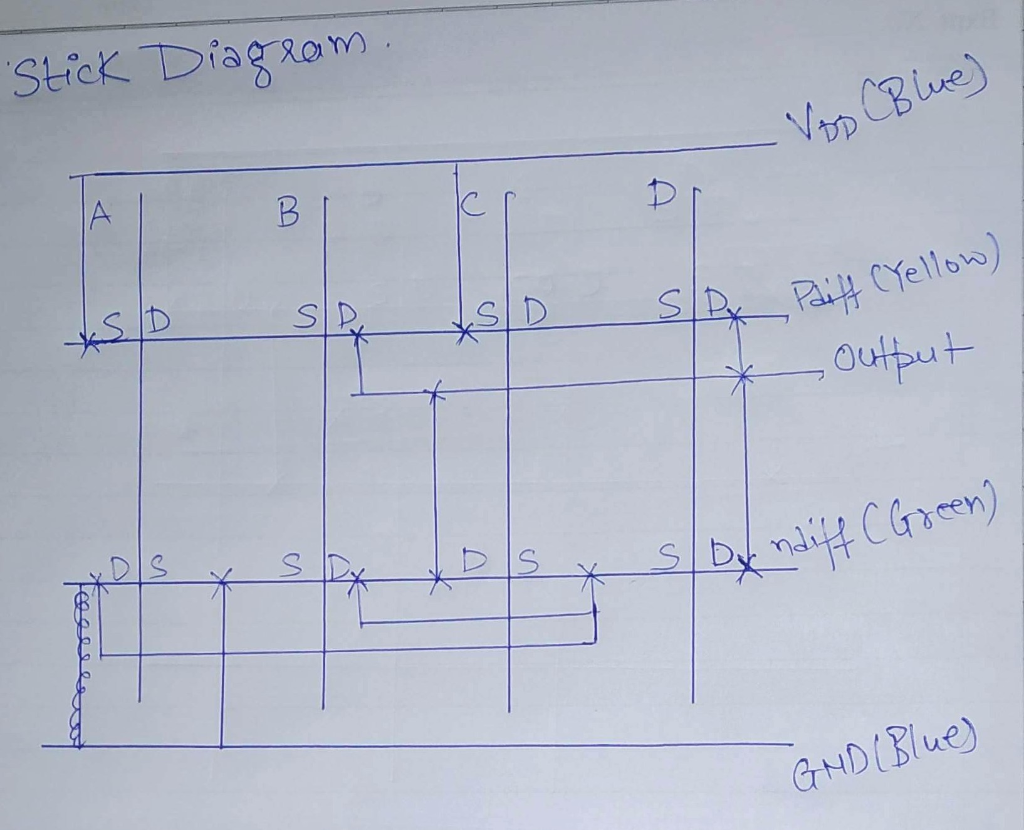 Stick Diagram.
VDD (Blue)
A B C D
S D S D S D S D Pdiff (Yellow)
Output
D S S D D S S D ndiff (Green)
GND (Blue)